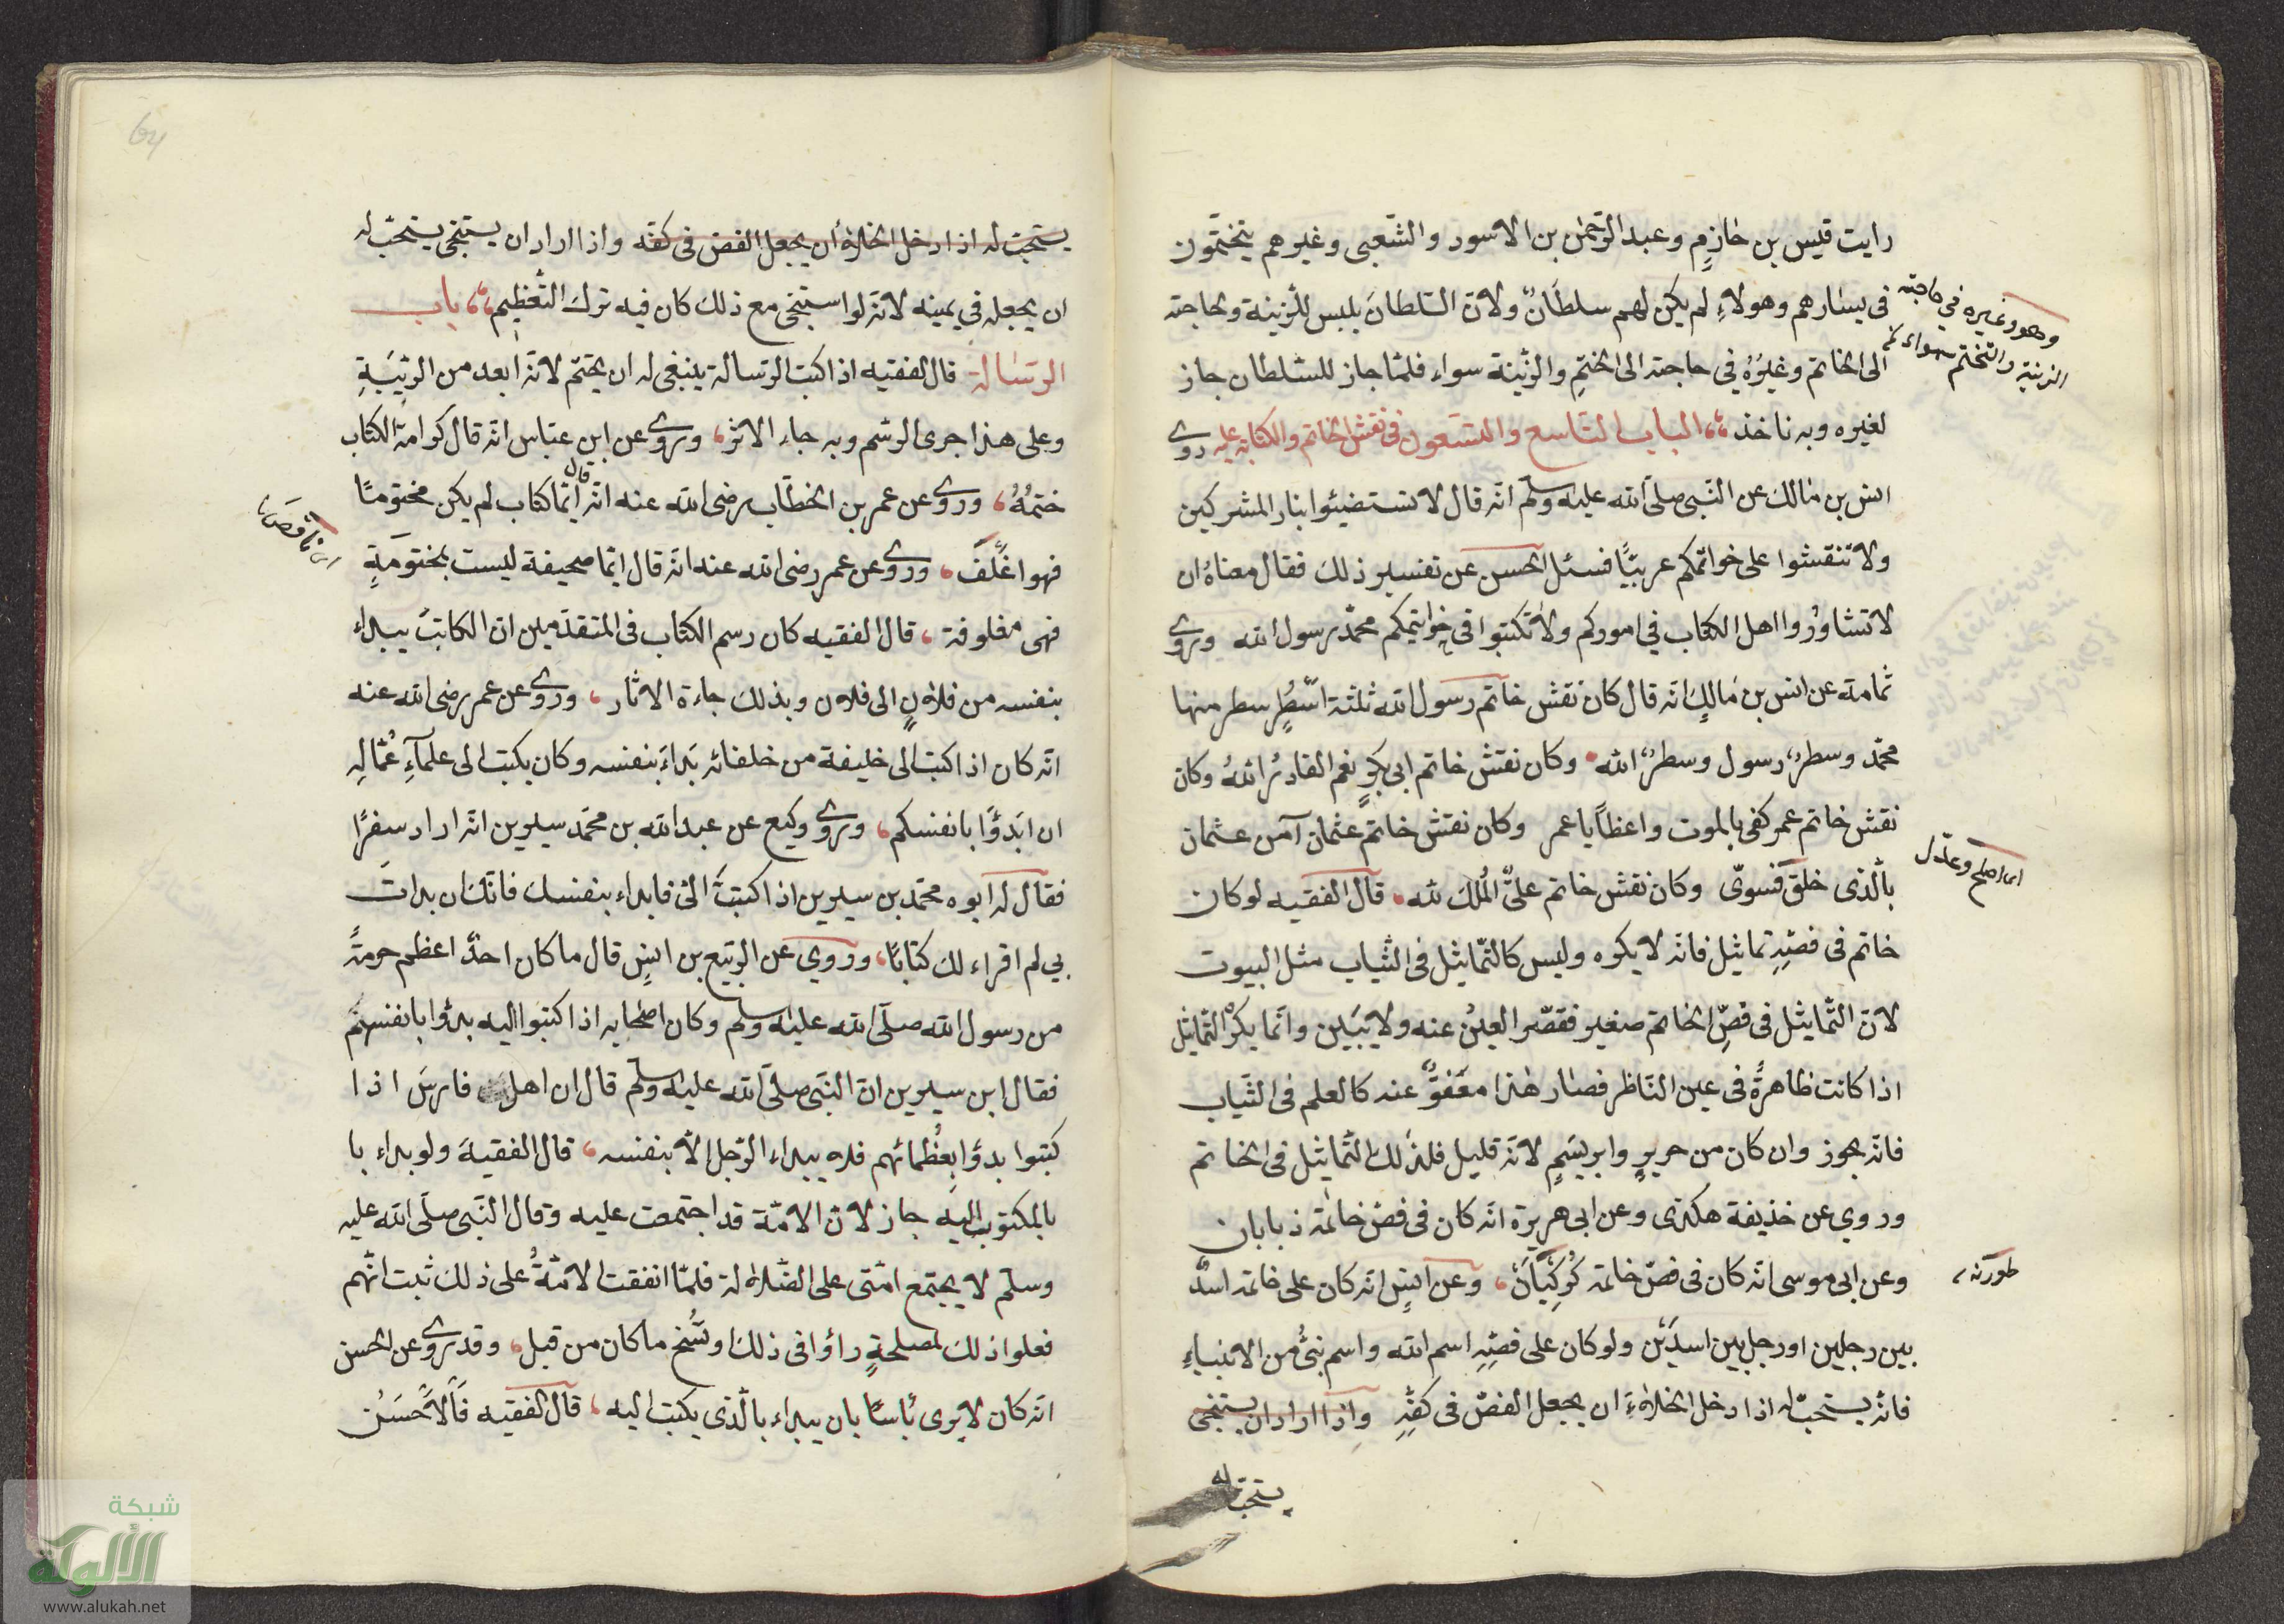 رايت قيس بن خازم وعبد الرّحمٰن بن الاسود والشّعبى وغيرهم يتختّمون
فى يسٰارهم وهولاءِ لم يكن لهم سلطانٌ ولانّ السّلطانَ يلبس للزّينة ولحاجته
وهو وغيره في حاجة
الزينة والتختم سواء
الى الخاتم وغيرُهُ في حاجته الى الختمِ والزّينة سواء فلمّا جاز للسّلطان جاز
لغيره وبه ناخذ الباب التاسع والتسعون فى نقش الخاتم والكتابة عليه روى
انس بن مٰالك عن النّبى صلّى الله عليه وسلّم انّه قال لا تستضيئوا بنار المشركين
ولا تنقشوا على خواتمكم عربيًّا فسئل الحسن عن تفسير ذلك فقال معناهُ ان
لا تشاوُروا اهل الكتاب في اموركم ولا تكتبوا فى خواتيمكم محمّد رسول الله وروى
ثمامة عن انس بن مٰالكٍ انّه قال كان نقش خاتم رسول الله ثلثة اسْطُرٍ سطر منها
محمّد وسطرٌ رسول وسطرٌ الله وكان نقش خاتم ابى بكرٍ نعم القادرُ اللهُ وكان
نقش خاتم عمر كفى بالموت واعظاً يا عمر وكان نقش خاتم عثمان آمن عثمان
بالّذى خلق فسوّى وكان نقش خاتم علىٌّ المُلك لله قال الفقيه لو كان
اى اصلح وعدّل
خاتم فى فصّهِ تماثيل فانّه لا يكره وليس كالتّماثيل فى الثّياب مثل البيوت
لانّ التّماثيل فى فصِّ الخاتم صغير فقصّر العينُ عنه ولا يبَين وانّما يكرُ التّماثيل
اذا كانت ظاهرةً فى عين النّاظر فصٰار هٰذا معفوٌّ عنه كالعلم فى الثّياب
فانّه يجوز وان كان من حريرٍ وابريسَمٍ لانّه قليل فلذٰلك التّماثيل فى الخاتم
وروي عن خذيفة هكذى وعن ابى هريرة انّه كان فى فصّ خاتمة ذبابان
وعن ابى موسى انّه كان فى فصّ خاتمة كُركِيّانَ وعن انسٍ انّه كان على خاتمة اسدٌ
طورنه
بين رجلين او رجل بين اسدَيْن ولو كان على فصّهِ اسم الله واسم نبىٌّ من الانبياءِ
فانّه يستحبّ له اذا دخل الخلاءَ ان يجعل الفصّ فى كفّهِ واذا اراد ان يستنجى
يستحبّ له
64
يستحبّ له اذا دخل الخلاء أن يجعل الفص فى كفّه واذا اراد ان يستنجى يستحبّ له
ان يجعله في يمينه لانّه لو استنجى مع ذلك كان فيه ترك التّعظيم باب
الرسٰالة قال الفقيه اذا كتب الرّسالة ينبغى له ان يختم لانّه ابعد من الرّيبَةِ
وعلى هذا جرى الرسم وبه جاء الاثر وروى عن ابن عبّاس انّه قال كرامة الكتاب
ختمُهُ وروى عن عمر بن الخطّاب رضى الله عنه انّه قال ايّما كتاب لم يكن مختومًا
فهو اغْلَفُ وروى عن عمر رضى الله عنه انّه قال ايّما صحيفة ليست بمختومَةٍ
فهى مغلوفة قال الفقيه كان رسم الكتاب فى المتقدّمين انّ الكاتبَ يبداء
بنفسه من فلانٍ الى فلان وبذلك جاءة الاثار وروى عن عمر رضى الله عنه
انّه كان اذا كتب الى خليفة من خلفائه بَداءَ بنفسه وكان يكتب الى علماءِ عُمّالِهِ
ان ابَدؤَا بانفسكم وروى وكيع عن عبد الله بن محمّد سيرين انّه اراد سفرًا
فقال له ابوه محمّد بن سيرين اذا كتبتَ الىّ فابداء بنفسك فانّك ان بداتَ
بي لم اقراء لك كتابًا وروي عن الرّبيع بن انسٍ قال ما كان احدٌ اعظم حرمةً
من رسول الله صلّى الله عليه وسلّم وكان اصحٰابه اذا كتبوا اليه بدؤا بانفسهم
فقال ابن سيرين انّ النّبى صلّى الله عليه وسلّم قال ان اهل فارسَ اذا
كتبوا بدؤا بعُظمائهم فلا يبداء الرّجل الّا بنفسه قال الفقيهَ ولو بداء با
بالمكتوب اليه جاز لانّ الامّة قد اجتمعت عليه وقال النّبى صلّى الله عليه
وسلّم لا يجتمع امّتى على الضّلالة فلمّا اتفقت الامّةُ على ذلك ثبت انّهم
فعلوا ذلك لمصلحةٍ رأوا فى ذلك ونُسخ ما كان من قبل وقد روى عن الحسن
انّه كان لا يرى بأسًا بان يبداء بالّذى يكتب اليه قال الفقيه فَالاَحْسَنُ
شبكة
الألوكة
www.alukah.net